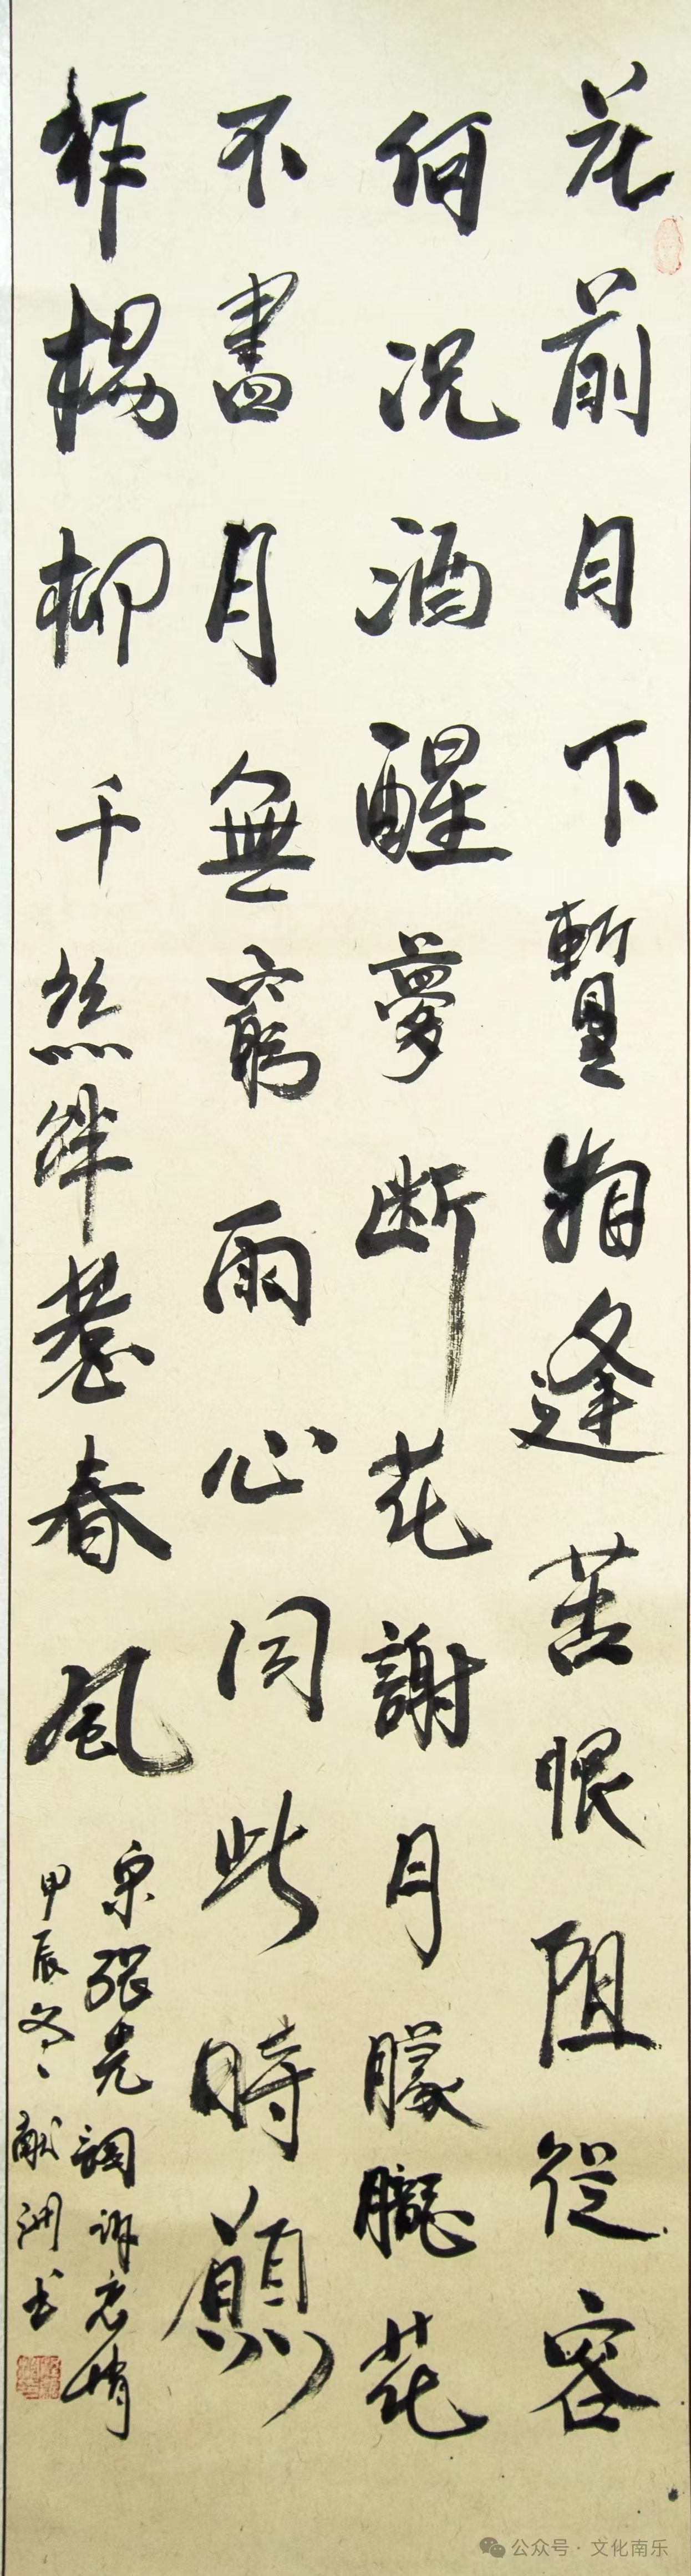 花前月下暫相逢苦恨阻從容
何况酒醒夢断花謝月朦朧花
不盡月無窮兩心同此時願
作楊柳千絲絆惹春風
宋張先詞訴衷情
甲辰冬献洲书
公众号 · 文化南乐